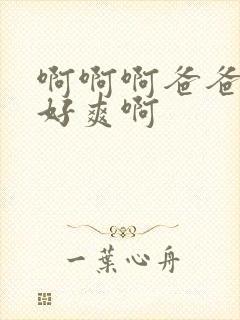 啊啊啊爸爸
好爽啊
一葉心舟